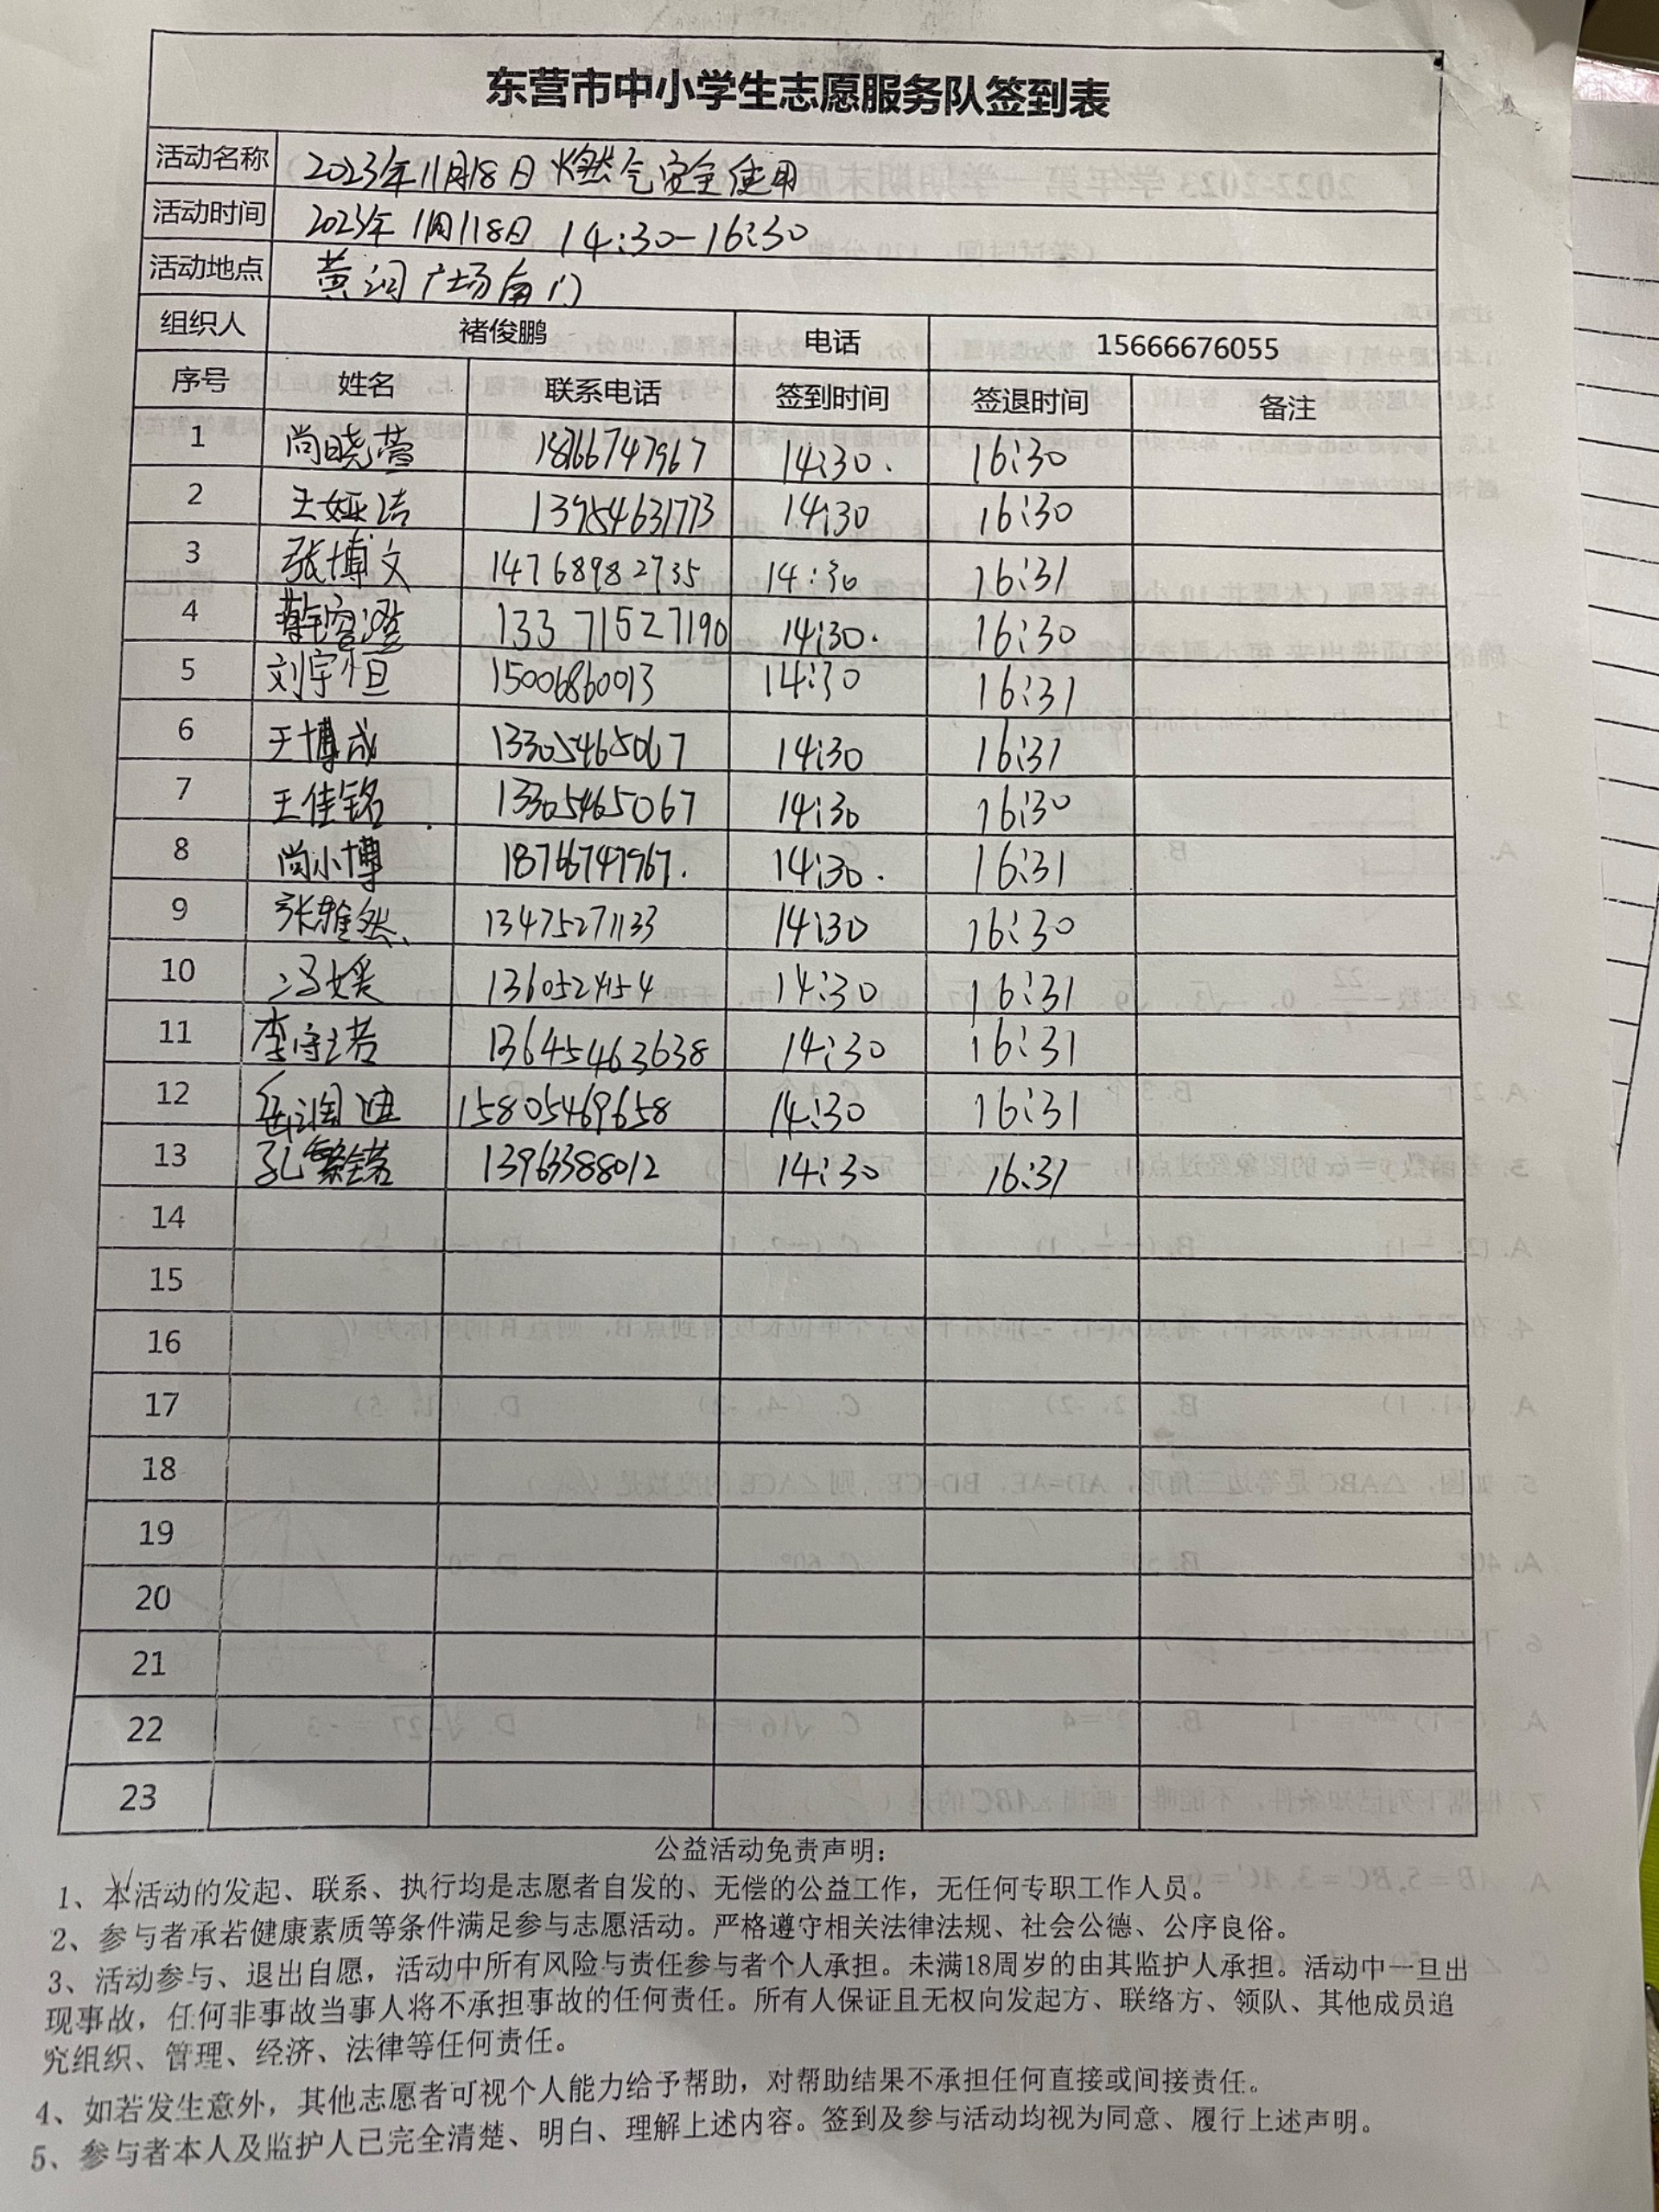 东营市中小学生志愿服务队签到表
活动名称 2023年11月18日 燃气安全使用
活动时间 2023年 11月118日 14:30-16:30
活动地点 黄河广场南门
组织人 褚俊鹏 电话 15666676055
序号 姓名 联系电话 签到时间 签退时间 备注
1 尚晓萱 18766747967 14:30. 16:30
2 王娅洁 13954631773 14:30 16:30
3 张博文 14768982735 14:30 16:31
4 133 71527190 14:30. 16:30
5 刘宇恒 15006860013 14:30 16:31
6 王博成 13305465067 14:30 16:31
7 王佳铭 13305465067 14:30 16:30
8 尚小博 18766747967. 14:30. 16:31
9 张雅然 13475271133 14:30 16:30
10 冯媛 14:30 16:31
11 13645463638 14:30 16:31
12 15805469658 14:30 16:31
13 孔繁 13963388012 14:30 16:31
14
15
16
17
18
19
20
21
22
23
公益活动免责声明：
1、本活动的发起、联系、执行均是志愿者自发的、无偿的公益工作，无任何专职工作人员。
2、参与者承若健康素质等条件满足参与志愿活动。严格遵守相关法律法规、社会公德、公序良俗。
3、活动参与、退出自愿，活动中所有风险与责任参与者个人承担。未满18周岁的由其监护人承担。活动中一旦出
现事故，任何非事故当事人将不承担事故的任何责任。所有人保证且无权向发起方、联络方、领队、其他成员追
究组织、管理、经济、法律等任何责任。
4、如若发生意外，其他志愿者可视个人能力给予帮助，对帮助结果不承担任何直接或间接责任。
5、参与者本人及监护人已完全清楚、明白、理解上述内容。签到及参与活动均视为同意、履行上述声明。